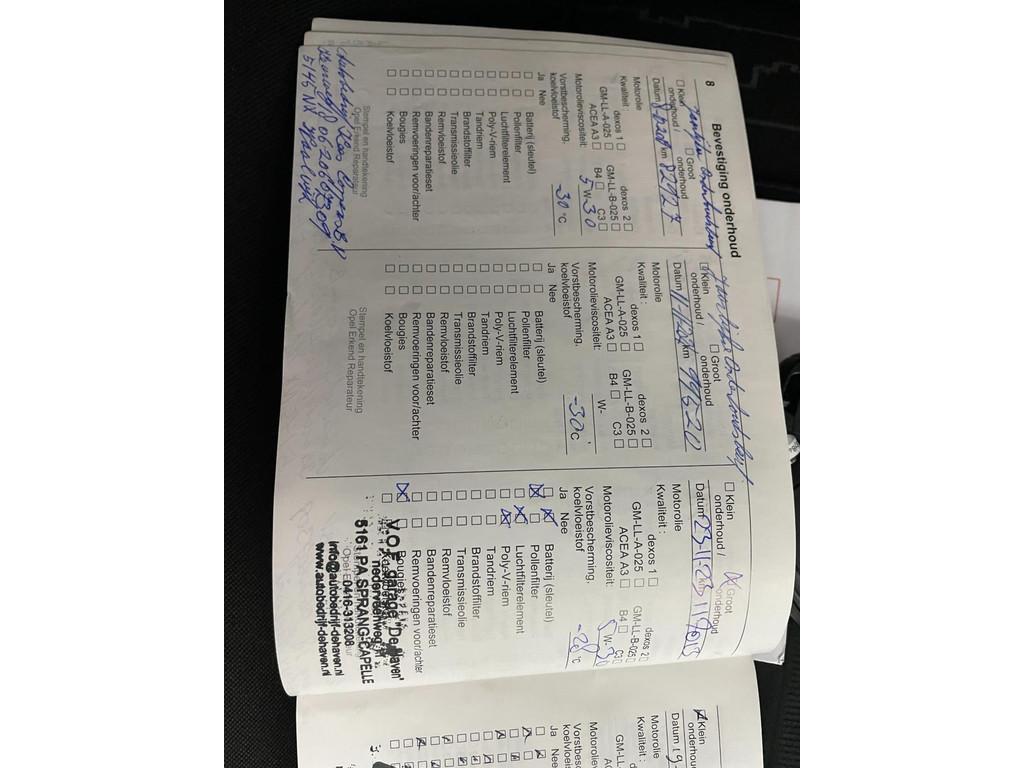 8
Bevestiging onderhoud
Klein onderhoud /
Groot onderhoud
Datum km 82927
Motorolie
Kwaliteit dexos 1 dexos 2
GM-LL-A-025 GM-LL-B-025
ACEA A3 B4 C3
Motorolieviscositeit: 5 W- 30
Vorstbescherming.
koelvloeistof -30 °C
Ja Nee
Batterij (sleutel)
Pollenfilter
Luchtfilterelement
Poly-V-riem
Tandriem
Brandstoffilter
Transmissieolie
Remvloeistof
Bandenreparatieset
Remvoeringen voor/achter
Bougies
Koelvloeistof
Stempel en handtekening
Opel Erkend Reparateur
5145 NX Waalwijk
Klein onderhoud /
Groot onderhoud
Datum km 99620
Motorolie
Kwaliteit : dexos 1 dexos 2
GM-LL-A-025 GM-LL-B-025
ACEA A3 B4 C3
Motorolieviscositeit: W-
Vorstbescherming.
koelvloeistof -30°C
Ja Nee
Batterij (sleutel)
Pollenfilter
Luchtfilterelement
Poly-V-riem
Tandriem
Brandstoffilter
Transmissieolie
Remvloeistof
Bandenreparatieset
Remvoeringen voor/achter
Bougies
Koelvloeistof
Stempel en handtekening
Opel Erkend Reparateur
Klein onderhoud /
Groot onderhoud
Datum 23-11-23 km
Motorolie
Kwaliteit : dexos 1 dexos 2
GM-LL-A-025 GM-LL-B-025
ACEA A3 B4 C3
Motorolieviscositeit: 5 W- 30
Vorstbescherming.
koelvloeistof -26 °C
Ja Nee
Batterij (sleutel)
Pollenfilter
Luchtfilterelement
Poly-V-riem
Tandriem
Brandstoffilter
Transmissieolie
Remvloeistof
Bandenreparatieset
Remvoeringen voor/achter
Bougies
V.O.F. garage "De Haven"
5161 PA SPRANG-CAPELLE
0416-313208
info@autobedrijf-dehaven.nl
www.autobedrijf-dehaven.nl
Klein
onderhoud
Datum 19-
Motorolie
Kwaliteit :
GM-LL
Motorolie
Vorstbes
koelvloei
Ja Nee